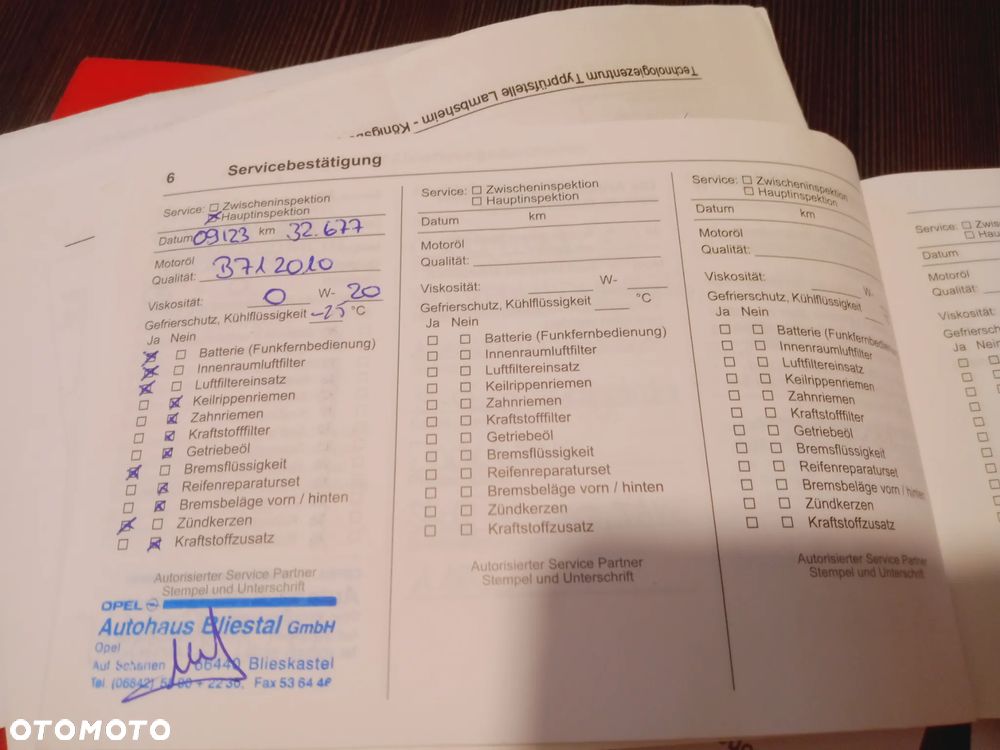 Technologiezentrum Typprüfstelle Lambsheim -
6 Servicebestätigung
Service: Zwischeninspektion
Hauptinspektion
Datum 09/23 km 32.677
Motoröl
Qualität: B712010
Viskosität: 0 W- 20
Gefrierschutz, Kühlflüssigkeit -25 °C
Ja Nein
Batterie (Funkfernbedienung)
Innenraumluftfilter
Luftfiltereinsatz
Keilrippenriemen
Zahnriemen
Kraftstofffilter
Getriebeöl
Bremsflüssigkeit
Reifenreparaturset
Bremsbeläge vorn / hinten
Zündkerzen
Kraftstoffzusatz
Autorisierter Service Partner
Stempel und Unterschrift
OPEL
Autohaus Bliestal GmbH
Opel
Auf Scharlen 66440 Blieskastel
Tel. (06842) + 22 36, Fax 53 64 48
Service: Zwischeninspektion
Hauptinspektion
Datum km
Motoröl
Qualität:
Viskosität: W-
Gefrierschutz, Kühlflüssigkeit °C
Ja Nein
Batterie (Funkfernbedienung)
Innenraumluftfilter
Luftfiltereinsatz
Keilrippenriemen
Zahnriemen
Kraftstofffilter
Getriebeöl
Bremsflüssigkeit
Reifenreparaturset
Bremsbeläge vorn / hinten
Zündkerzen
Kraftstoffzusatz
Autorisierter Service Partner
Stempel und Unterschrift
Service: Zwischeninspektion
Hauptinspektion
Datum km
Motoröl
Qualität:
Viskosität: W-
Gefrierschutz, Kühlflüssigkeit
Ja Nein
Batterie
Innenraumluftfilter
Luftfiltereinsatz
Keilrippenriemen
Zahnriemen
Kraftstofffilter
Getriebeöl
Bremsflüssigkeit
Reifenreparaturset
Bremsbeläge vorn / hinten
Zündkerzen
Kraftstoffzusatz
Autorisierter Service Partner
Stempel und Unterschrift
Service:
Datum
Motoröl
Qualität:
Viskosität:
Ja Nein
OTOMOTO